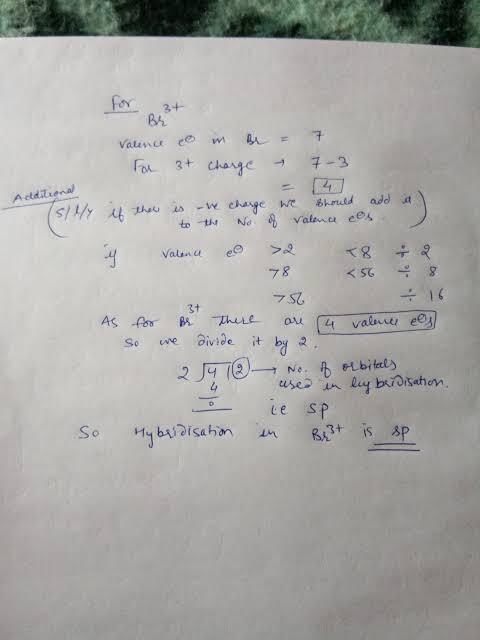 For
Br 3+
Valence e⊖ in Br = 7
For 3+ charge → 7-3
= 4
Additional
(S/l/y if ther is -ve charge we should add it
to the No. of valence e⊖s.)
if valence e⊖ >2 <8 ÷ 2
>8 <56 ÷ 8
>56 ÷ 16
As for Br 3+ there are 4 valence e⊖s
So we divide it by 2.
2 √4 | 2 → No. of orbitals
4 used in hybridisation.
0 i.e sp
So Hybridisation in Br3+ is sp